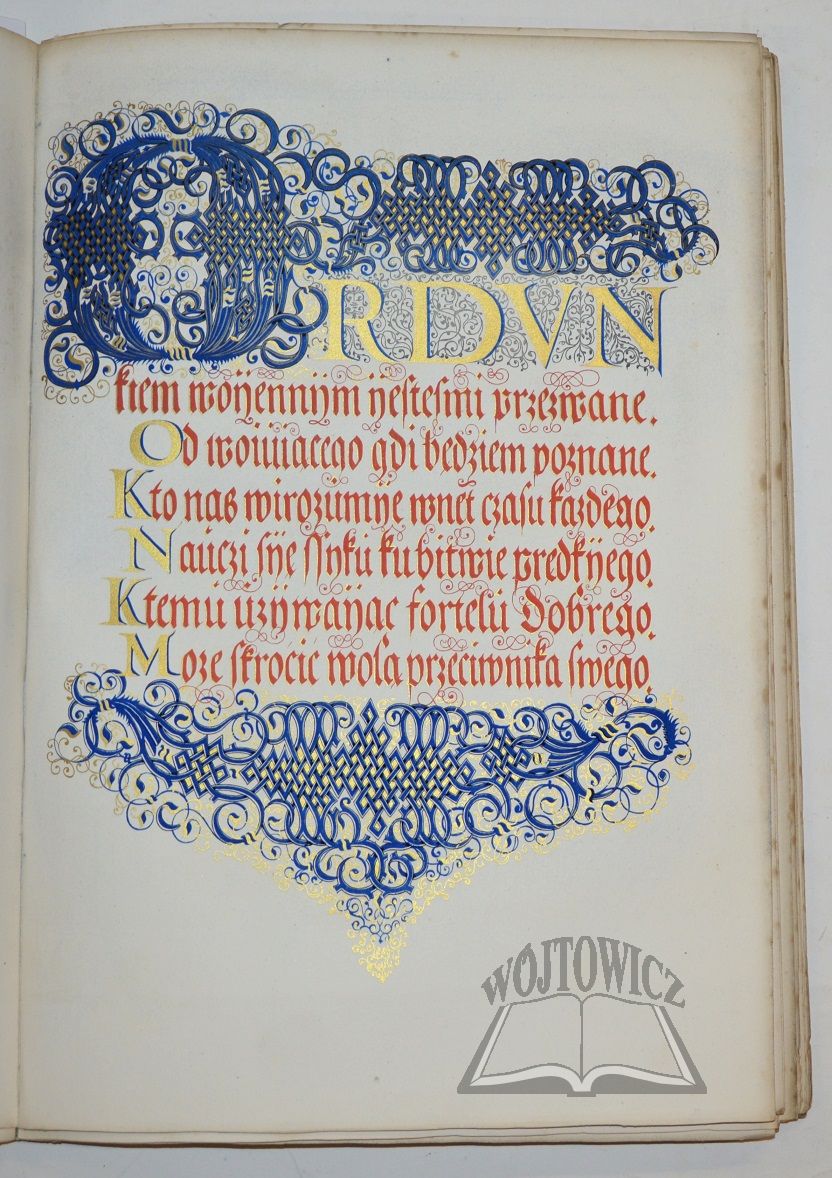 ORDVN
kiem woijennijm ijestesmi przezwane.
Od woiuiącego gdi będziem poznane.
Kto nas wirozumije wnet czasu każdego.
Nauczi sije ssyku ku bitwie prędkijego.
Ktemu użijwaijąc fortelu dobrego.
Może skrocić wolą przeciwnika swego.
WÓJTOWICZ